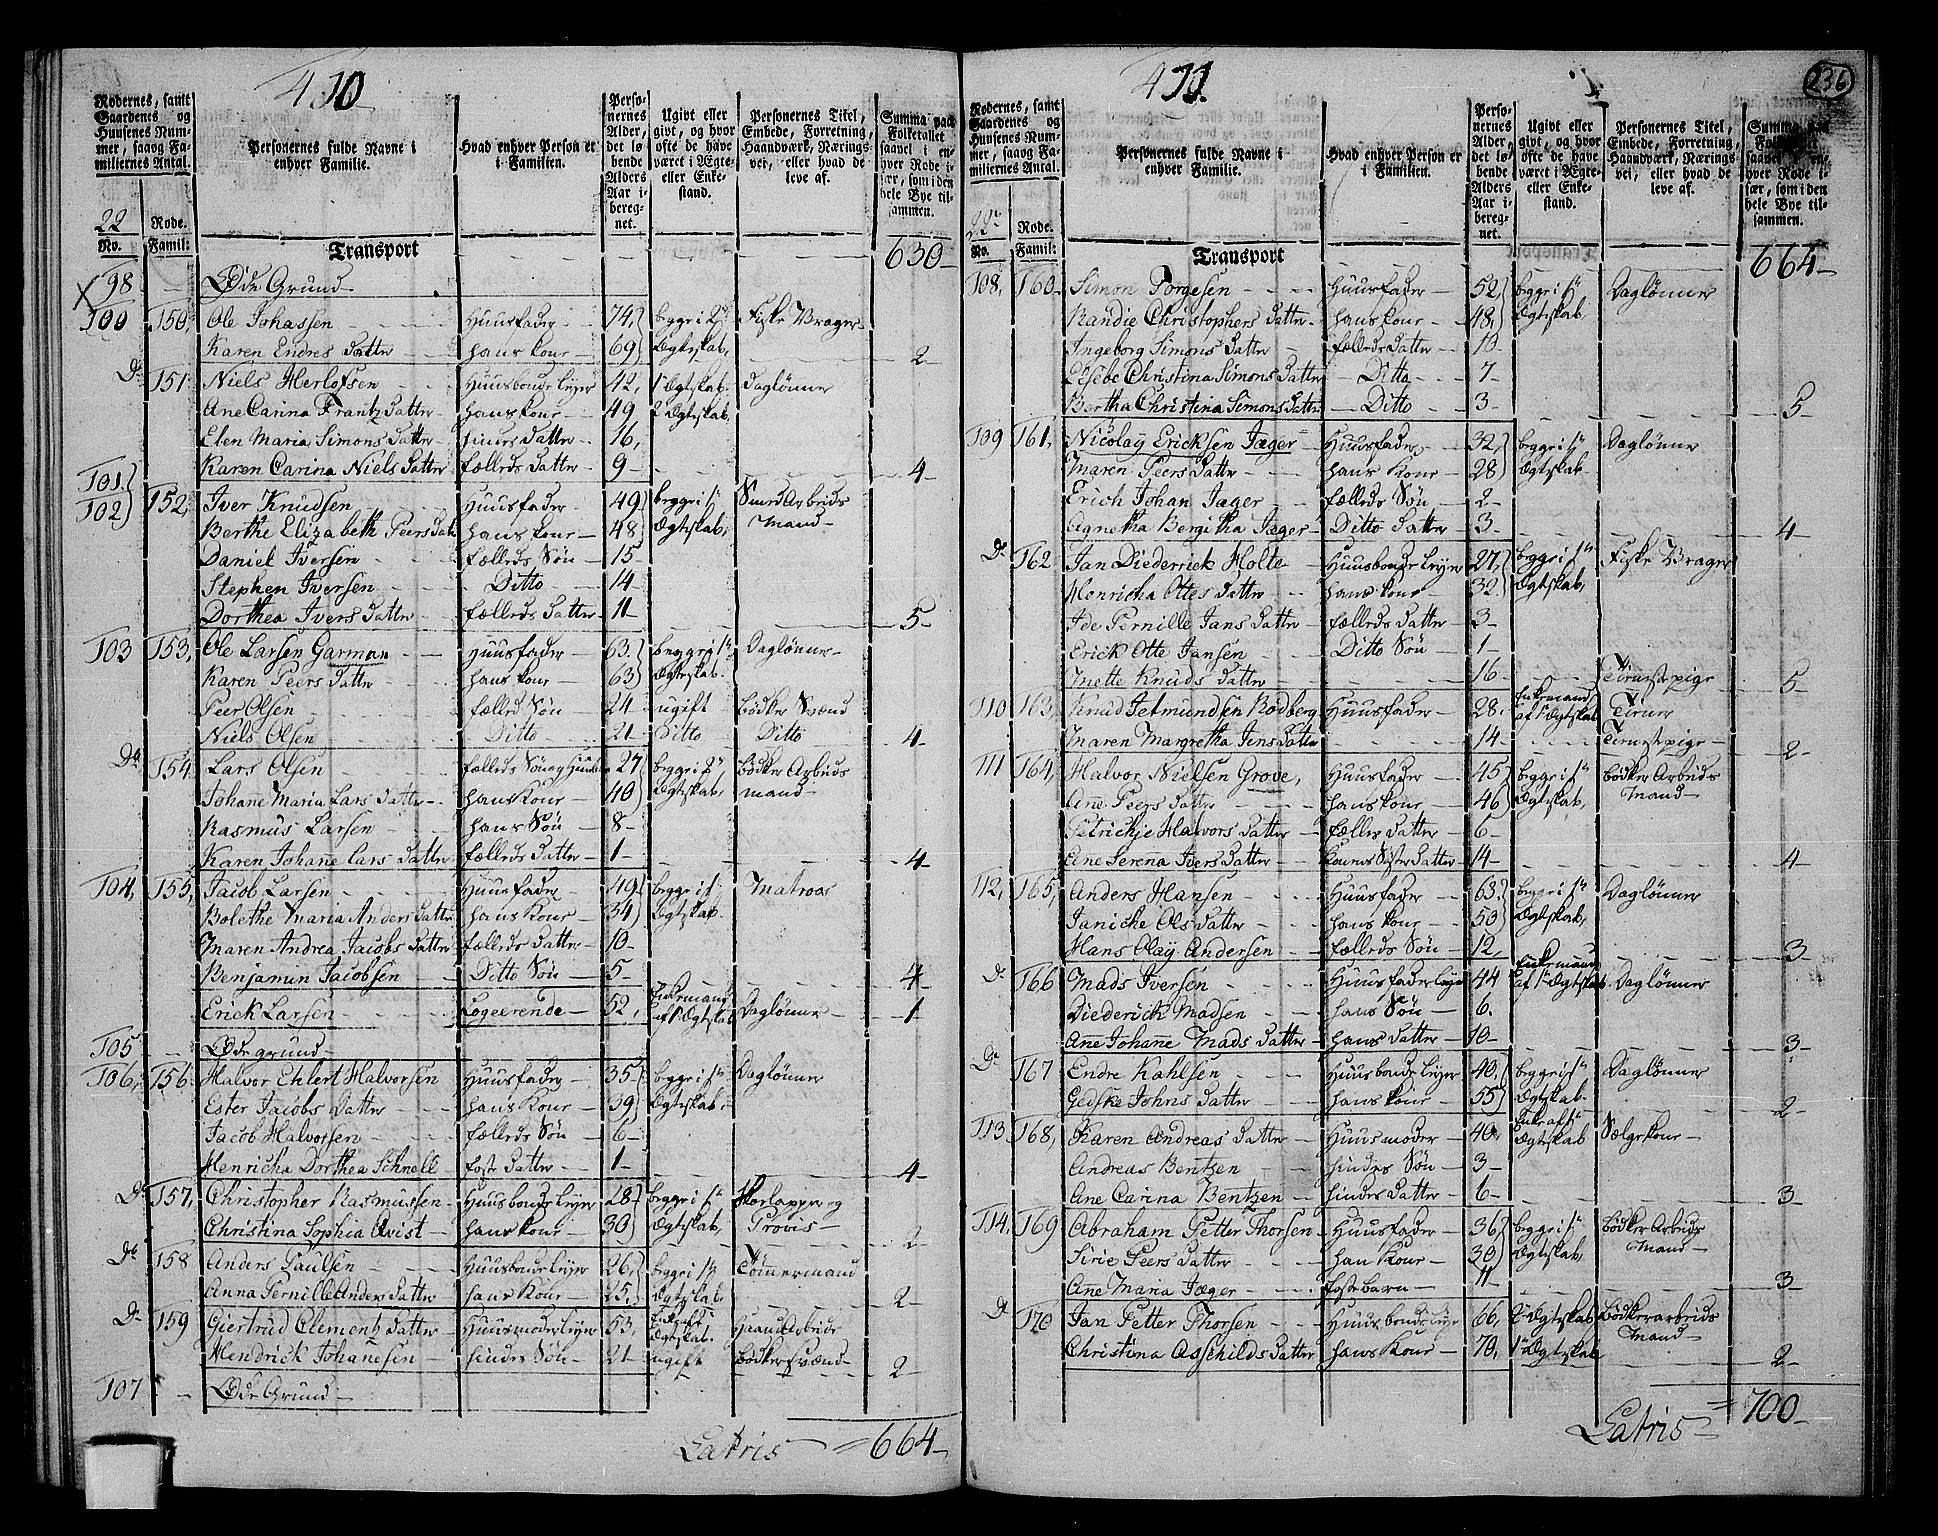 410
Rodernes, samt Gaardenes og Huusenes Nummer, saavog Familiernes Antal.
Personernes fulde Navne i enhver Familie.
Hvad enhver Person er i Familien.
Personernes Alder, det løbende Alders Aar iberegnet.
Ugivt eller givt, og hvor ofte de have været i Ægte- eller Enkestand.
Personernes Titel, Embede, Forretning, Haandværk, Næringsvei, eller hvad de leve af.
Summa paa Folketallet saavel i enhver Rode især, som i den hele Bye tilsammen.
22 Rode.
No. Famil: Transport 630
98 Øde Grund
100 150, Ole Johassen Huusfader 74, begge i 2d Fiske Vrager
Karen Endres Datter hans Kone 69 Ægteskab, 2
Do 151 Niels Herlofsen Huusbonde Leyer 42, 1 Ægtskab Daglønner
Ane Carina Frantz Datter hans kone 49 2 Ægtskab,
Elen Maria Simons Datter hindes Datter 16,
Karen Carina Niels Datter fælleds Datter 9 4
101
102 152, Iver Knudsen Huusfader 49 begge i 1ste Smed Arbeids
Berthe Elizabeth Peers Dat hans Kone 48 Ægtskab, Mand
Daniel Iversen fælleds Søn 15
Stephen Iversen Ditto 14
Dorthea Ivers Datter fælleds Datter 11 5
103 153, Ole Larsen Garman Huusfader 63 begge i 1ste Daglønner
Karen Peers Datter hans Kone 63 Ægtskab
Peer Olsen fælleds Søn 24 ugift Bødker Svænd
Niels Olsen Ditto 21 Ditto Ditto 4
Do 154 Lars Olsen fælleds Søn og 27 begge i 2d Bødker Arbeids
Johane Maria Lars Datter hans Kone 40 Ægtskab, mand
Rasmus Larsen hans Søn 8
Karen Johane Lars Datter fælleds Datter 1 4
104, 155, Jacob Larsen Huusfader 49 begge i 1 Matroos
Bolethe Maria Anders Datter hans Kone 34 Ægtskab
Maren Andrea Jacobs Datter fælleds Datter 10
Benjamin Jacobsen Ditto Søn 5 4
Erick Larsen Logeerende 52, Enkemand af 1 Ægtskab Daglønner 1
105 Øde grund
106, 156 Halvor Ehlert Halvorsen Huusfader 35 begge i 1ste Daglønner
Ester Jacobs Datter hans Kone 39 Ægtskab
Jacob Halvorsen fælleds Søn 6
Henricha Dorthea Schnell foste Datter 1 4
Do 157, Christopher Rasmussen Huusbonde Leyer 28 begge i 1ste og
Christina Sophia Qvist hans Kone 30 Ægtskab, Provis 2
Do 158 Anders Paulsen Huusbonde Leyer 26, begge i 1ste Tømmermand
Anna Pernille Anders Datter hans Kone 25, Ægtskab 2
Do 159 Giertrud Clementz Datter Huusmoder Leyer 53, Enke af 1 Ægtskab. Haand Arbeide
Hendrick Johanesen hindes Søn 21 ugift Bødkersvænd 2
107 Øde Grund
Latris 664
411.
236
Rodernes, samt Gaardenes og Huusenes Nummer, saavog Familiernes Antal.
Personernes fulde Navne i enhver Familie.
Hvad enhver Person er i Familien.
Personernes Alder, det løbende Alders Aar iberegnet.
Ugivt eller givt, og hvor ofte de have været i Ægte- eller Enkestand.
Personernes Titel, Embede, Forretning, Haandværk, Næringsvei, eller hvad de leve af.
Summa paa Folketallet saavel i enhver Rode især, som i den hele Bye tilsammen.
22 Rode.
No. Famil: Transport 664
108, 160 Simon Torgesen Huusfader 52, begge i 1ste Daglønner
Randie Christophers Datter hans Kone 48, Ægtskab
Ingeborg Simons Datter fælleds Datter 10
Christina Simons Datter Ditto 7
Bertha Christina Simons Datter Ditto 3 5
109 161, Nicolay Ericksen Jæger Huusfader 32, begge i 1ste Daglønner
Maren Peers Datter hans Kone 28 Ægtskab
Erich Johan Jæger fælleds Søn 2
Agnetha Bergitha Jæger Ditto Datter 3 4
Do 162 Jan Diederick Holte Huusbonde Leyer 27, begge i 1ste Fiske Vrager
Henricha Ottes Datter hans kone 32 Ægtskab,
Ide Pernille Jans Datter fælleds Datter 3
Erick Otte Jansen Ditto Søn 1
Mette Knuds Datter 16 Tienestepige 5
110 163, Knud Jetmundsen Rodberg Huusfader 28 Enkemand af 1 Ægtskab Tiener
Maren Margretha Jens Datter 14 Tienestepige 2
111 164, Halvor Nielsen Grove, Huusfader 45 begge i 1ste Bødker Arbeids
Anne Peers Datter hans Kone 46 Ægtskab, Mand
Petrickje Halvors Datter fælles Datter 6
Ane Serenna Ivers Datter Konens Søster Datter 14 4
112, 165, Anders Hansen Huusfader 63 begge i 1ste Daglønner
Janiche Ols Datter hans Kone 50 Ægtskab,
Hans Olay Andersen fælleds Søn 12, 3
Do 166 Mads Iversen Huusfader Leyer 44 Enkemand af 1 Ægtskab Daglønner
Diederick Madsen hans Søn 6.
Ane Johane Mads Datter hans Datter 10 3
Do 167 Endre Kahlsen Huusbonde Leyer 40, begge i 1ste Daglønner
Gedske Johns Datter hans Kone 55 Ægtskab 2
113 168, Karen Andreas Datter Huusmoder 40 Enke af 1ste Ægtskab Sælgekone
Andreas Bentzen hindes Søn 3
Ane Carina Bentzen hindes Datter 6 3
114, 169 Abraham Petter Thorsen Huusfader 36 begge i 1ste Bødker Arbeids
Sirie Peers Datter han Kone 30 Ægtskab, Mand
Anne Maria Jæger fostebarn 11 3
Do 170 Jan Petter Thorsen Huusbonde Leyer 66, 2 Ægtskab Bødkerarbeids
Christina Asschilds Datter hans Kone 70, 1 Ægtskab Mand 2
Latris 700